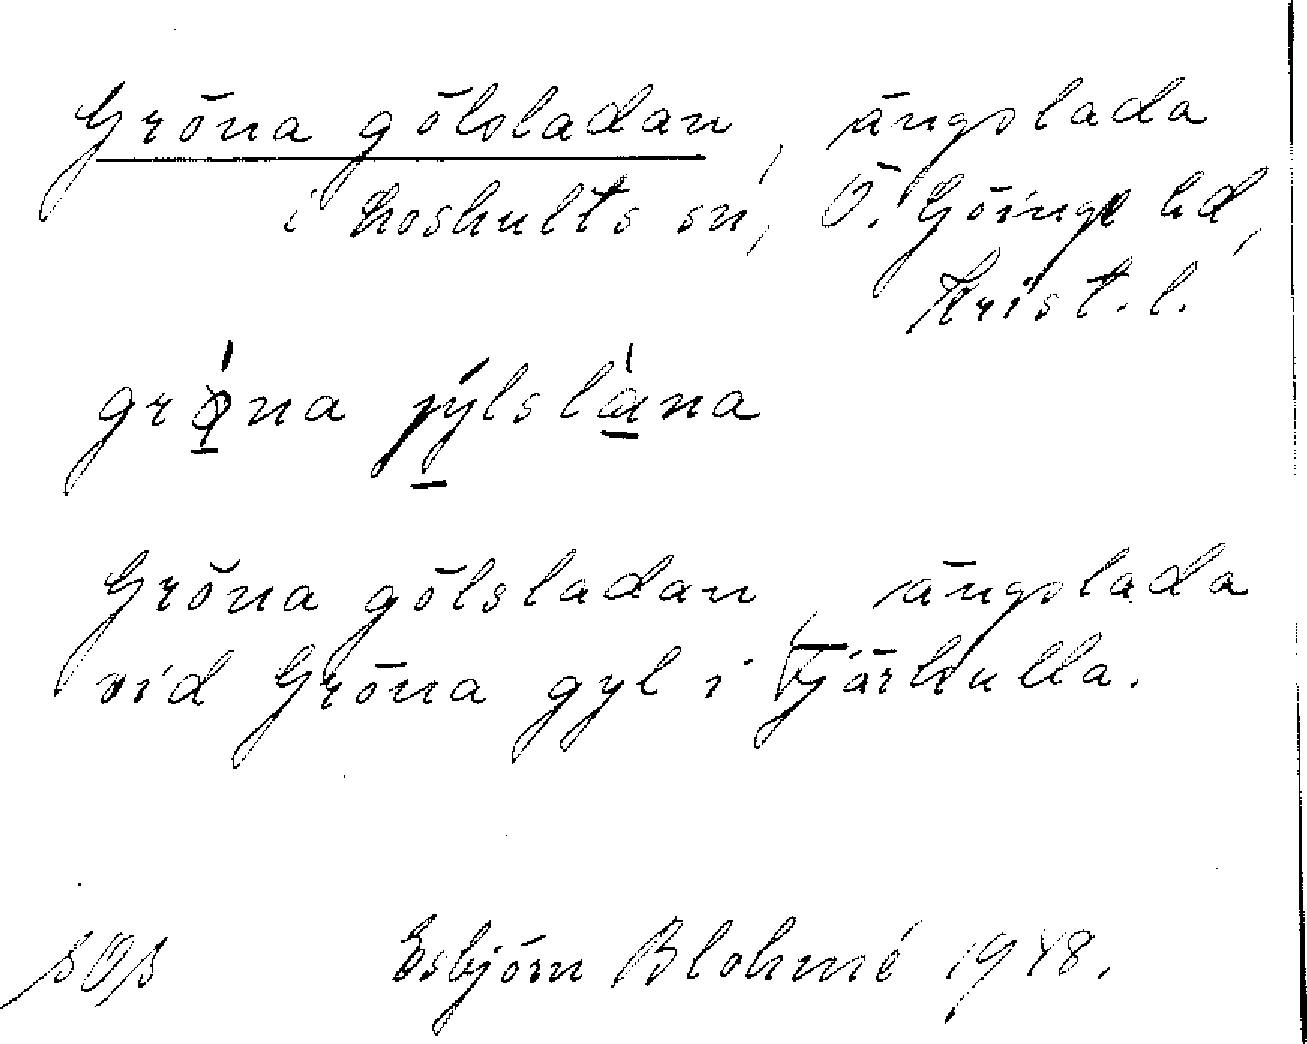 Gröna gölsladan, ängslada
i Loshults sn, Ö. Göinge hd,
Krist. l.
grǿna jýlslána
Gröna gölsladan, ängslada
vid Gröna gyl i Fjärhulla.
Esbjörn Blohmé 1948.